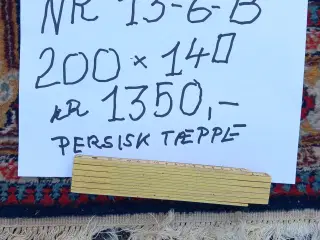 NR 13-6-B
200 × 140
KR 1350,-
PERSISK TÆPPE